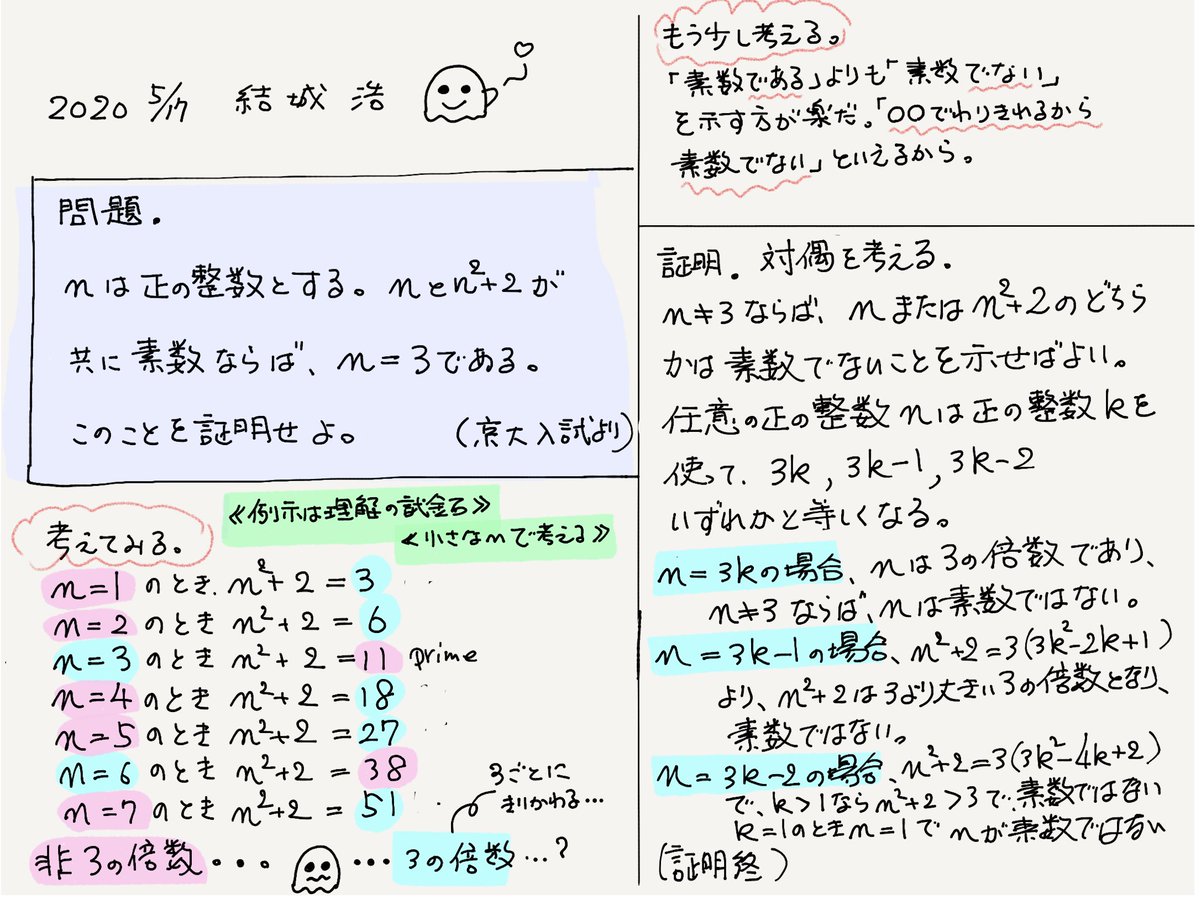 2020 5/17 結城 浩
問題.
nは正の整数とする。nとn²+2が
共に素数ならば、n=3である。
このことを証明せよ。 (京大入試より)
《例示は理解の試金石》
《小さなnで考える》
考えてみる。
n=1のとき. n²+2=3 ..
n=2のとき n²+2=6 .
n=3のとき n²+2=11 prime
n=4のとき n²+2=18 ..
n=5のとき n²+2=27 .
n=6のとき n²+2=38
n=7のとき n²+2=51
3ごとに
きりかわる…
非3の倍数・・・。 …3の倍数…?
もう少し考える。
「素数である」よりも「素数でない」
を示す方が楽だ。「〇〇でわりきれるから
素数でない」といえるから。
証明. 対偶を考える.
n≠3ならば、nまたはn²+2のどちら
かは素数でないことを示せばよい。
任意の正の整数nは正の整数kを
使って、3k, 3k-1, 3k-2
いずれかと等しくなる。
n=3kの場合、nは3の倍数であり、
n≠3ならば、nは素数ではない。
n=3k-1の場合、n²+2=3(3k²-2k+1)
より、n²+2は3より大きい3の倍数となり、
素数ではない。
n=3k-2の場合、n²+2=3(3k²-4k+2)
で、k>1ならn²+2>3で、素数ではない
k=1のときn=1でnが素数ではない
(証明終)